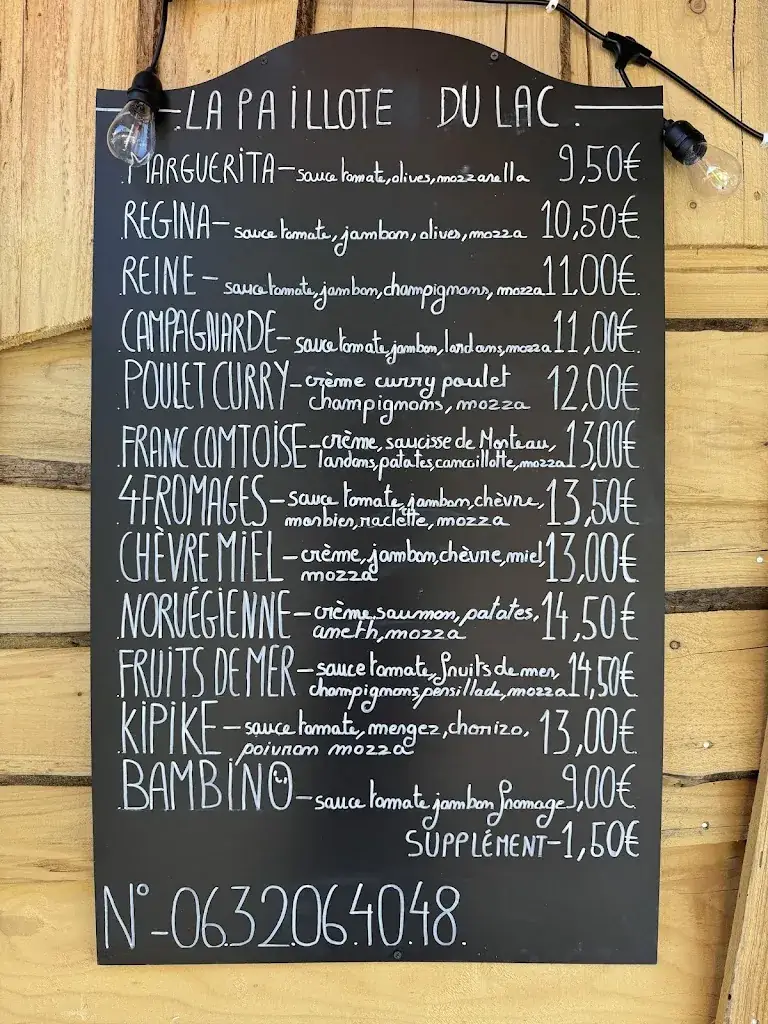 LA PAILLOTE DU LAC
MARGUERITA-sauce tomate, olives, mozzarella 9,50€
REGINA-sauce tomate, jambon, olives, mozza 10,50€
REINE-sauce tomate, jambon, champignons, mozza 11,00€
CAMPAGNARDE-sauce tomate, jambon, lardons, mozza 11,00€
POULET CURRY-crème curry poulet 12,00€
champignons, mozza
FRANC COMTOISE-crème, saucisse de Morteau, 13,00€
lardons, patates, cancoillotte, mozza
4 FROMAGES-sauce tomate, jambon, chèvre, 13,50€
morbier, raclette, mozza
CHÈVRE MIEL-crème, jambon, chèvre, miel, 13,00€
mozza
NORVÉGIENNE-crème, saumon, patates, 14,50€
aneth, mozza
FRUITS DE MER-sauce tomate, fruits de mer, 14,50€
champignons, persillade, mozza
KIPIKE-sauce tomate, mergez, chorizo, 13,00€
poivron mozza
BAMBINO-sauce tomate jambon fromage 9,00€
SUPPLÉMENT-1,50€
N°-0632064048.